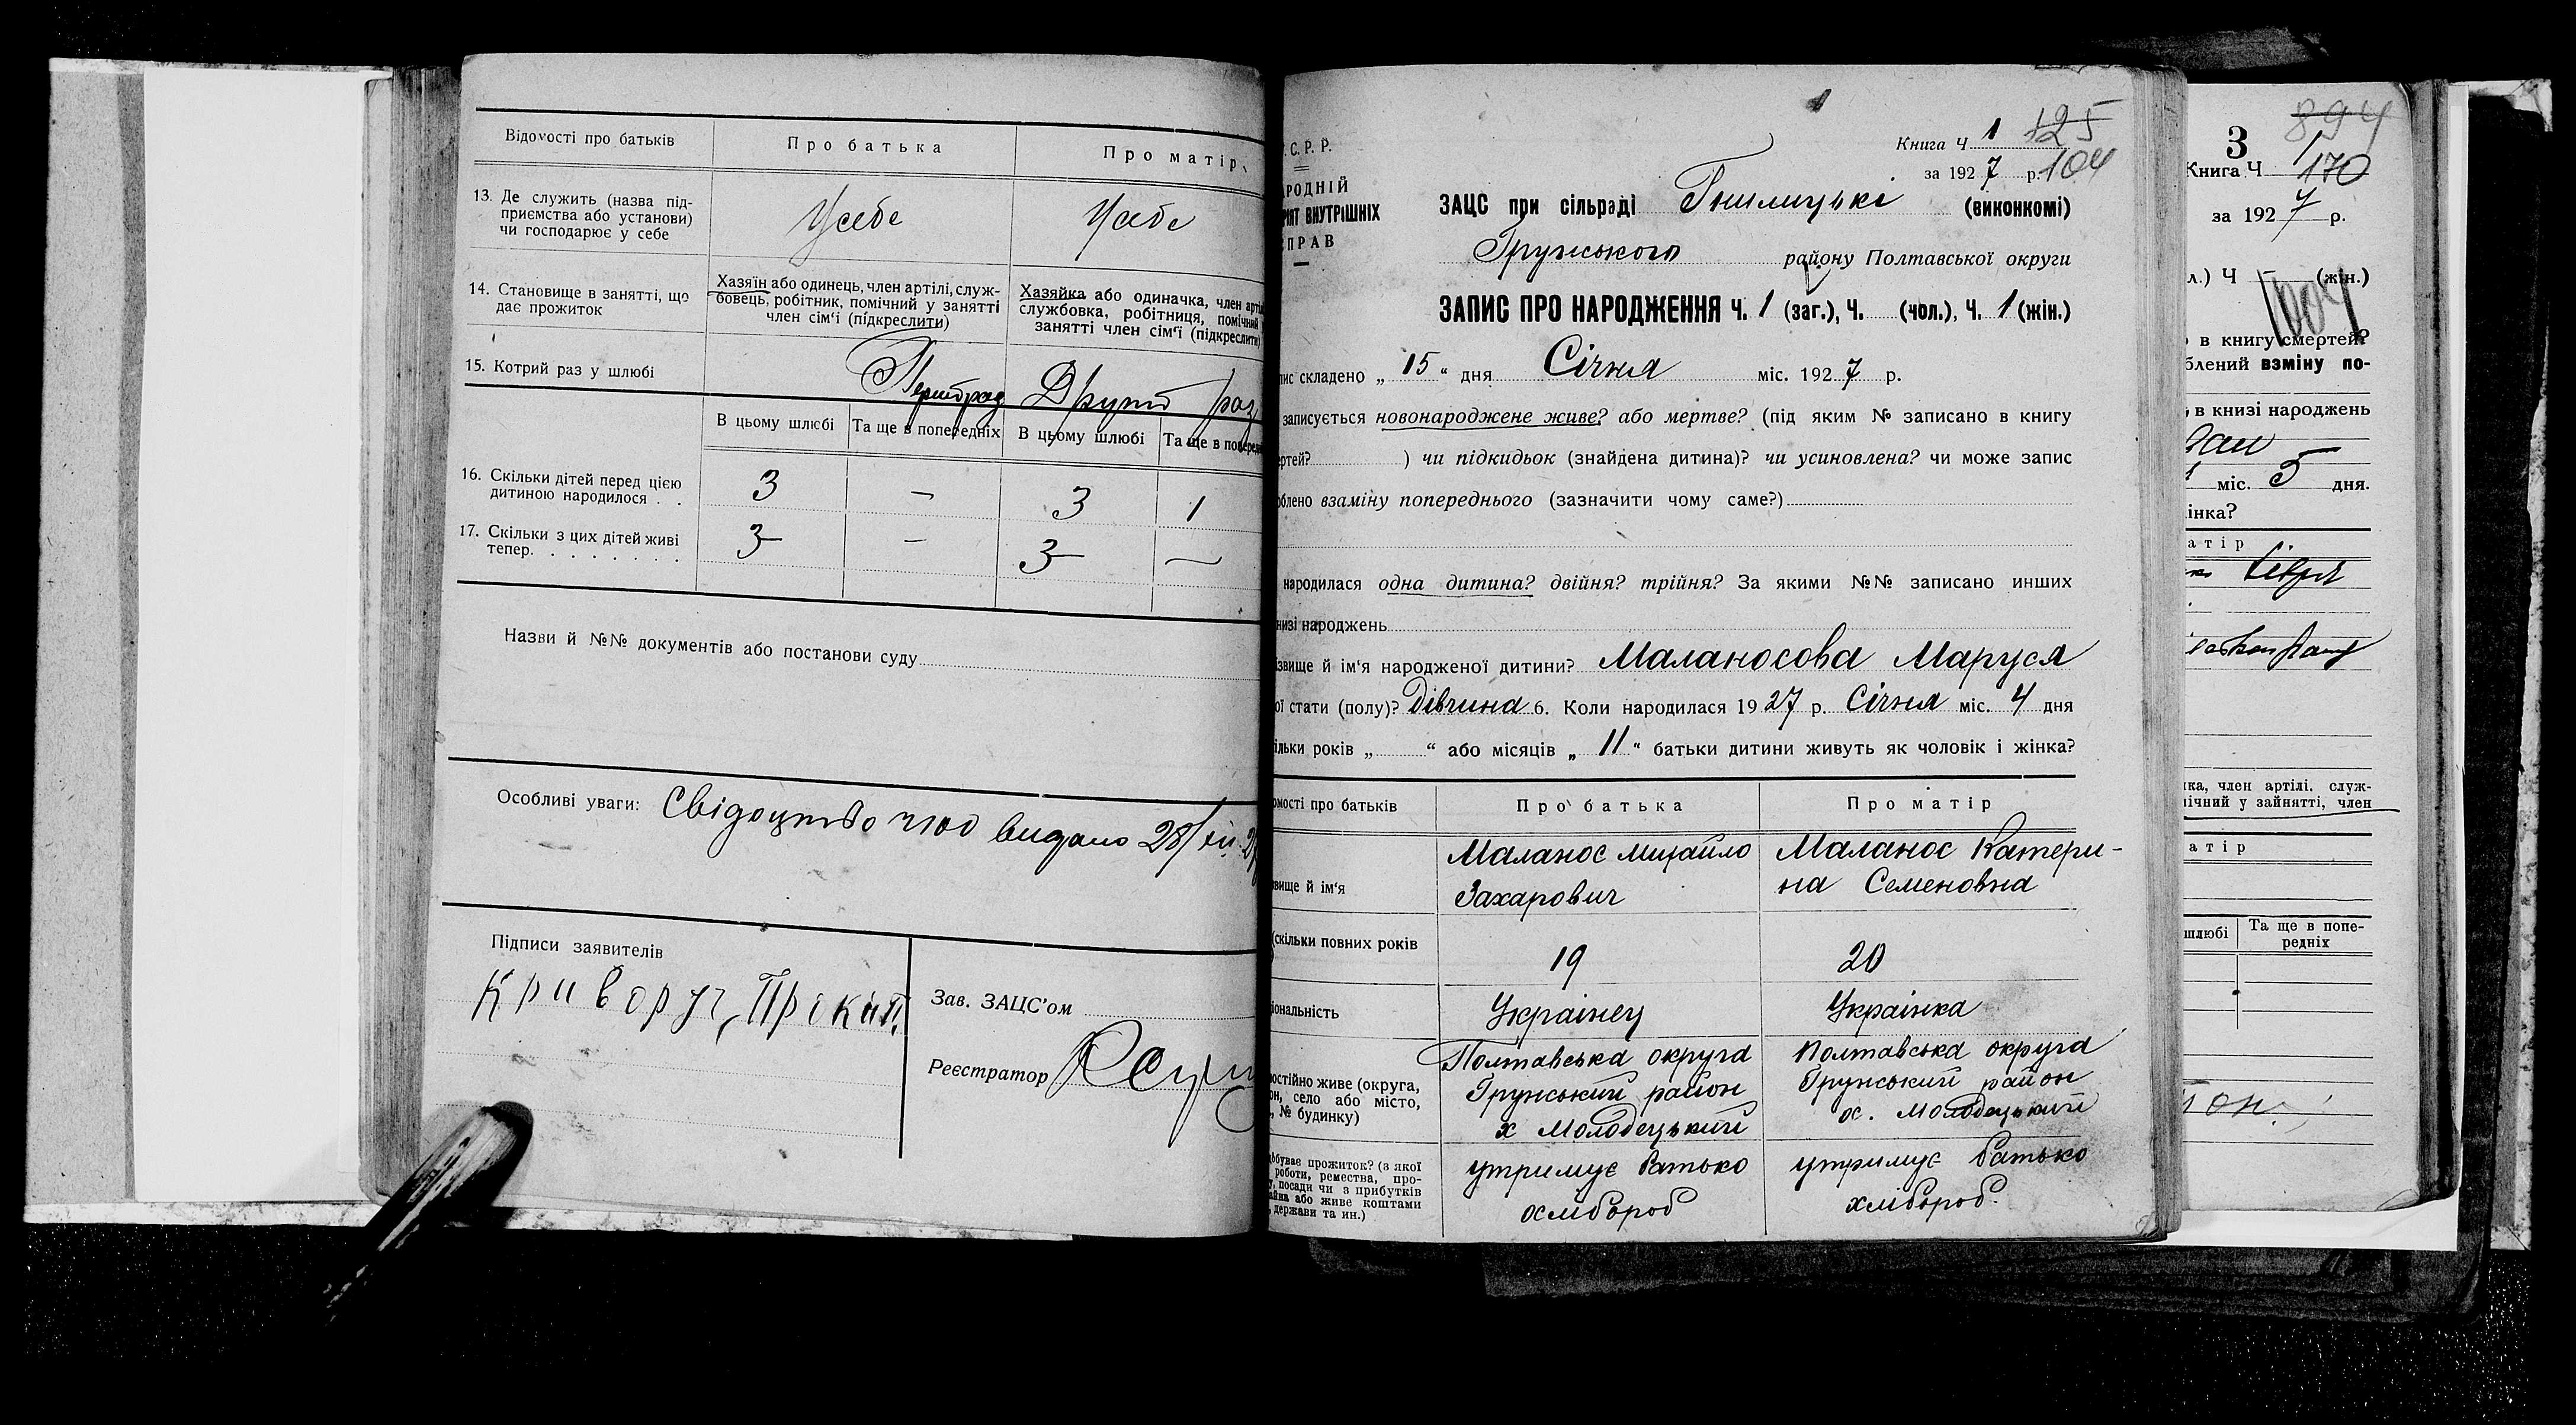 Відомості про батьків
Про батька
Про матір
13. Де служить (назва під-
приємства або установи)
чи господарює у себе
Усебе
Усебе
14. Становище в занятті, що
дає прожиток
Хазяїн або одинець, член артілі, служ-
бовець, робітник, помічний у занятті
член сім'ї (підкреслити)
Хазяйка або одиначка, член артіл
службовка, робітниця, помічний
занятті член сім'ї (підкреслити)
15. Котрий раз у шлюбі
Другий раз
В цьому шлюбі
Та ще в попередніх
В цьому шлюбі
Та ще в поперед
16. Скільки дітей перед цією
дитиною народилося . .
3
—
3
1
17. Скільки з цих дітей живі
тепер. . . . . . . .
3
—
3
—
Назви й №№ документів або постанови суду
Особливі уваги: Свідоцтво ч100 видано 28/
Підписи заявителів
Криворуч, Прокіп.
Зав. ЗАЦС'ом
Реєстратор
.С.Р.Р.
РОДНІЙ
РІЯТ ВНУТРІШНІХ
ПРАВ
Книга Ч. 1 125
за 1927 р. 104
ЗАЦС при сільраді Гнилицькі (виконкомі)
Грунського району Полтавської округи
ЗАПИС ПРО НАРОДЖЕННЯ Ч. 1 (заг.), Ч. (чол.), Ч. 1 (жін.)
пис складено „ 15 “ дня Січня міс. 1927 р.
записується новонароджене живе? або мертве? (під яким № записано в книгу
ртей? ) чи підкидьок (знайдена дитина)? чи усиновлена? чи може запис
облено взаміну попереднього (зазначити чому саме?)
народилася одна дитина? двійня? трійня? За якими №№ записано инших
низі народжень
ізвище й ім'я народженої дитини? Маланосова Маруся
ої стати (полу)? Дівчина 6. Коли народилася 1927 р. Січня міс. 4 дня
ільки років „ “ або місяців „ 11 “ батьки дитини живуть як чоловік і жінка?
омості про батьків
Про батька
Про матір
звище й ім'я
Маланос Михайло
Захарович
Маланос Катери-
на Семеновна
(скільки повних років
19
20
іональність
Українец
Українка
остійно живе (округа,
он, село або місто,
, № будинку)
Полтавська округа
Грунський район
х Молодецький
Полтавська округа
Грунський район
х. Молодецький
обуває прожиток? (з якої
роботи, ремества, про-
, посади чи з прибутків
айна або живе коштами
, держави та ин.)
утримує батько
хлібороб
утримує батько
хлібороб
3 894
Книга Ч 1 170
за 1927 р.
л.) Ч (жін.)
в книгу смертей?
блений взміну по-
, в книзі народжень
міс. 5 дня.
інка?
атір
нка, член артілі, служ-
мічний у зайнятті, член
атір
шлюбі
Та ще в попе-
редніх